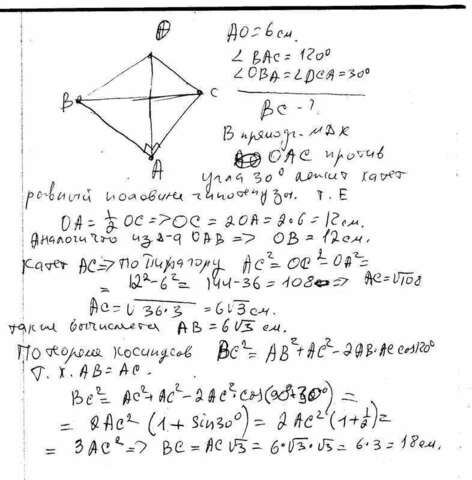 O
AO = 6 см.
∠BAC = 120°
B
C
∠OBA = ∠OCA = 30°
BC - ?
A
В прямоуг.
OAC против
угла 30° лежит катет
равный половине гипотенузы. т. Е
OA = 1/2 OC => OC = 2OA = 2·6 = 12 см.
Аналогично из OAB => OB = 12 см.
Катет AC => по Пифагору AC² = OC² - OA² =
= 12² - 6² = 144 - 36 = 108 => AC = √108
AC = √36·3 = 6√3 см.
также вычисляется AB = 6√3 см.
По теореме косинусов BC² = AB² + AC² - 2AB·AC cos120°
Т. К. AB = AC.
BC² = AC² + AC² - 2AC²·cos(90° + 30°) =
= 2AC² (1 + sin30°) = 2AC² (1 + 1/2) =
= 3AC² => BC = AC√3 = 6·√3·√3 = 6·3 = 18 см.